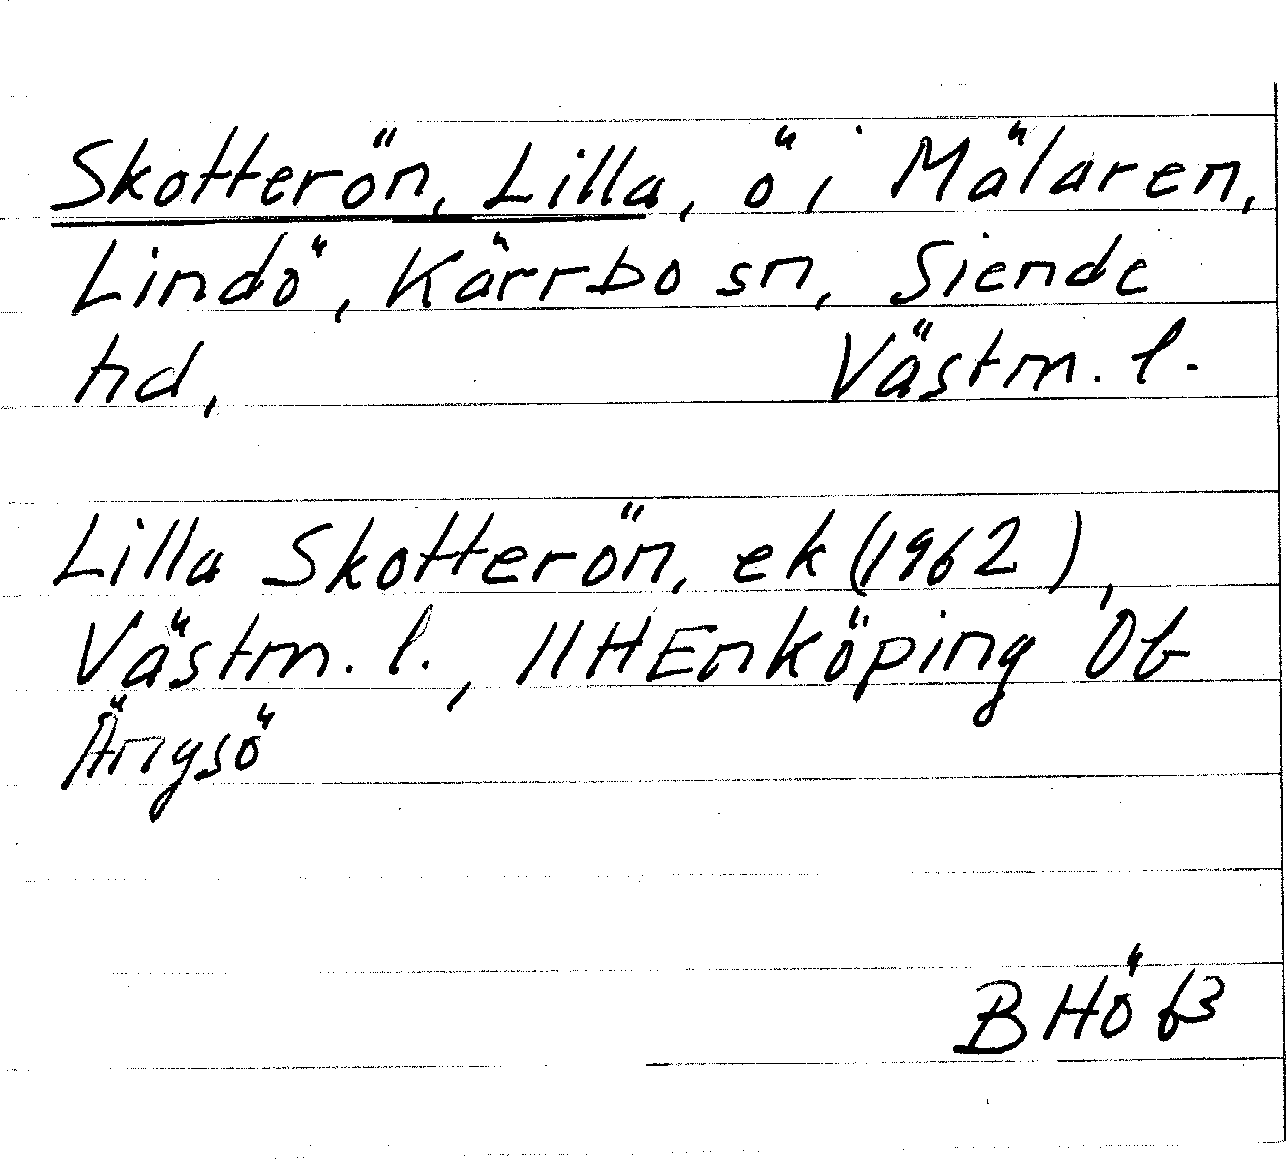 Skotterön, Lilla, ö i Mälaren,
Lindö, Kärrbo sn, Siende
hd, Västm. l.
Lilla Skotterön, ek (1962),
Västm. l., 11HEnköping 0b
Ängsö
BHö 63